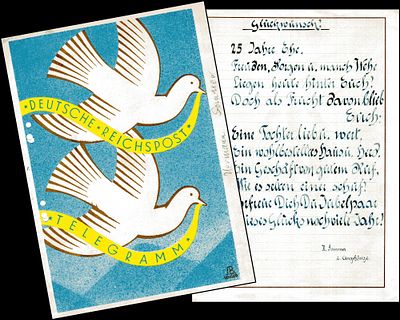 DEUTSCHE · REICHSPOST
TELEGRAMM
Glückwunsch!
25 Jahre Ehe.
Freuden, Sorgen u. manch Wehe
Liegen heute hinter Euch!
Doch als Frucht davon blieb
Euch:
Eine Tochter lieb u. wert,
Ein wohlbestelltes Haus u. Herd.
Ein Geschäft von gutem Ruf,
Wie es selten einer schuf.
Dich Du Jubelpaar
dieses Glücks noch viele Jahr!